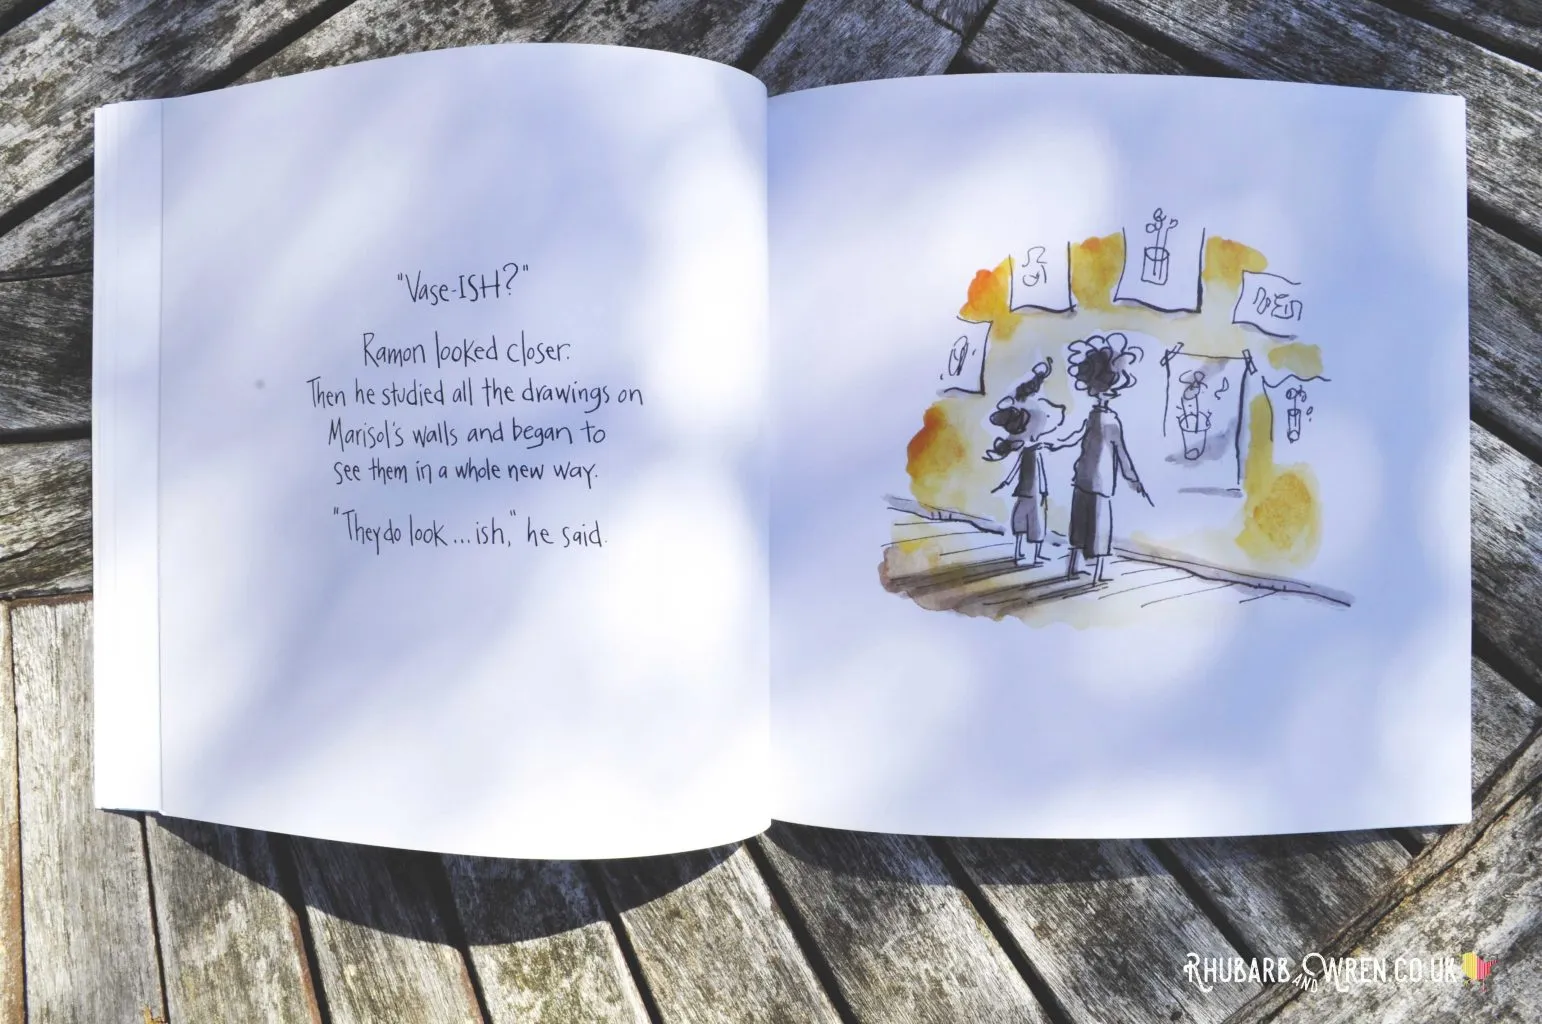 "Vase-ISH?"
Ramon looked closer.
Then he studied all the drawings on
Marisol's walls and began to
see them in a whole new way.
"They do look ... ish," he said.
RHUBARB AND WREN.CO.UK